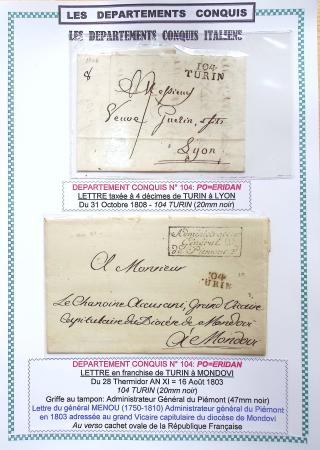 LES DEPARTEMENTS CONQUIS
LES DEPARTEMENTS CONQUIS ITALIENS
104
TURIN
A Monsieur
Veuve Guerin, &
Lyon
DEPARTEMENT CONQUIS N° 104: PO=ERIDAN
LETTRE taxée à 4 décimes de TURIN à LYON
Du 31 Octobre 1808 - 104 TURIN (20mm noir)
Administrateur
Général
de Piémont
A Monsieur
104
TURIN
Le Chanoine Accusani, Grand Vicaire
Capitulaire du Diocèse de Mondovi
À Mondovi
DEPARTEMENT CONQUIS N° 104: PO=ERIDAN
LETTRE en franchise de TURIN à MONDOVI
Du 28 Thermidor AN XI = 16 Août 1803
104 TURIN (20mm noir)
Griffe au tampon: Administrateur Général du Piémont (47mm noir)
Lettre du général MENOU (1750-1810) Administrateur général du Piémont
en 1803 adressée au grand Vicaire capitulaire du diocèse de Mondovi
Au verso cachet ovale de la République Française